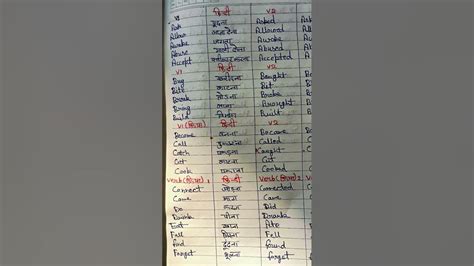 V1 हिन्दी V2
Ask पूछना Asked
Allow आज्ञा देना Allowed
Awake जगाना Awoke
Abuse गाली देना Abused
Accept स्वीकार करना Accepted
V1 हिन्दी V2
Buy खरीदना Bought
Bite काटना Bit
Break तोड़ना Broke
Bring लाना Brought
Build निर्माण Built
V1 (क्रिया) हिन्दी V2
Become बनना Became
Call बुलाना Called
Catch पकड़ना Caught
Cut काटना Cut
Cook पकाना Cooked
Verb (क्रिया) 1 हिन्दी Verb (क्रिया) 2
Connect जोड़ना Connected
Come आना Came
Do करना Did
Drink पीना Drank
Eat खाना Ate
Fall गिरना Fell
Find ढूंढ़ना Found
Forget भूलना Forgot